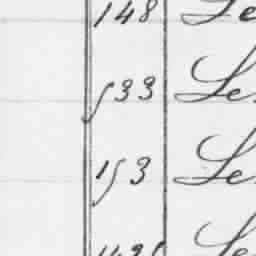 148 Le
533 Le
153 Le
Le